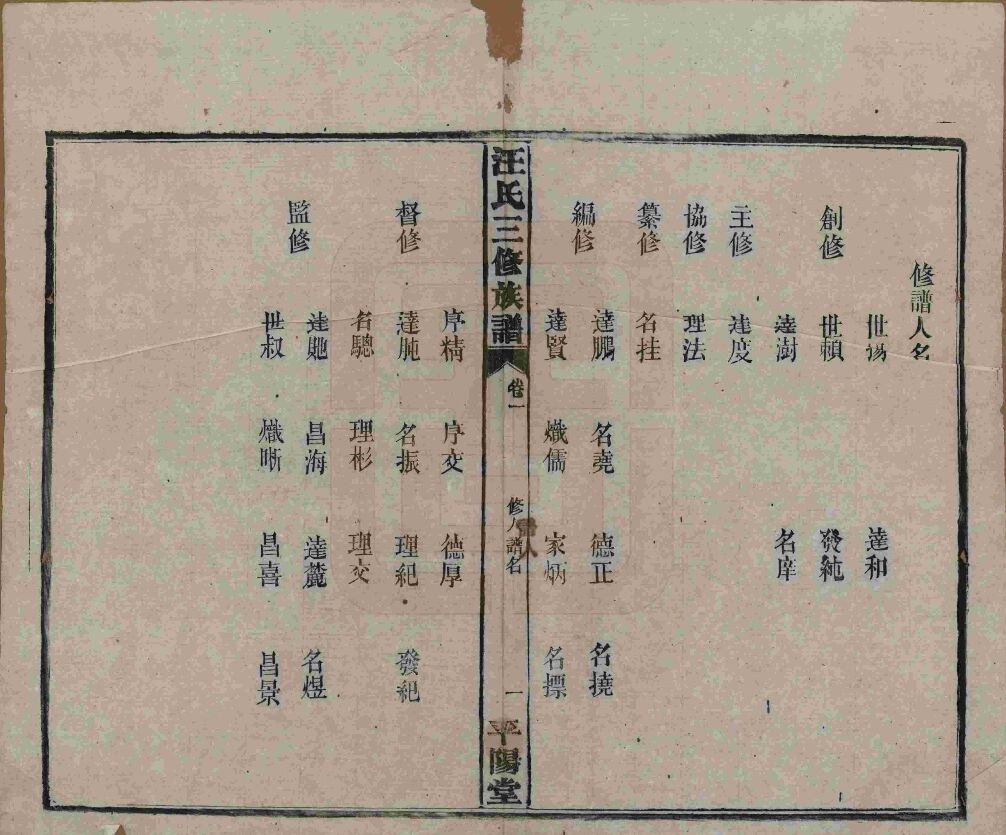 修譜人名
世揚 達和
創修 世賴 發純
達澍 名庠
主修 達度
協修 理法
纂修 名挂
達鵬 名堯 德正 名撓
編修
達賢 熾儒 家炳 名摽
汪氏三修族譜 卷一 修人譜名 一 平陽堂
序精 序交 德厚
督修 達肫 名振 理紀 發紀
名驄 理彬 理交
達貤 昌海 達蔍 名煜
監修
世叔 熾晣 昌喜 昌景